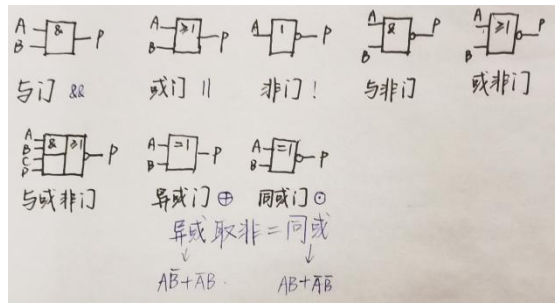 A B & P A B ≥1 P A 1 P A B & P A B ≥1 P
与门 && 或门 || 非门 ! 与非门 或非门
A B C D & ≥1 P A B =1 P A B =1 P
与或非门 异或门 ⊕ 同或门 ⊙
异或取非=同或
↓ ↓
AB̅+A̅B. AB+A̅B̅